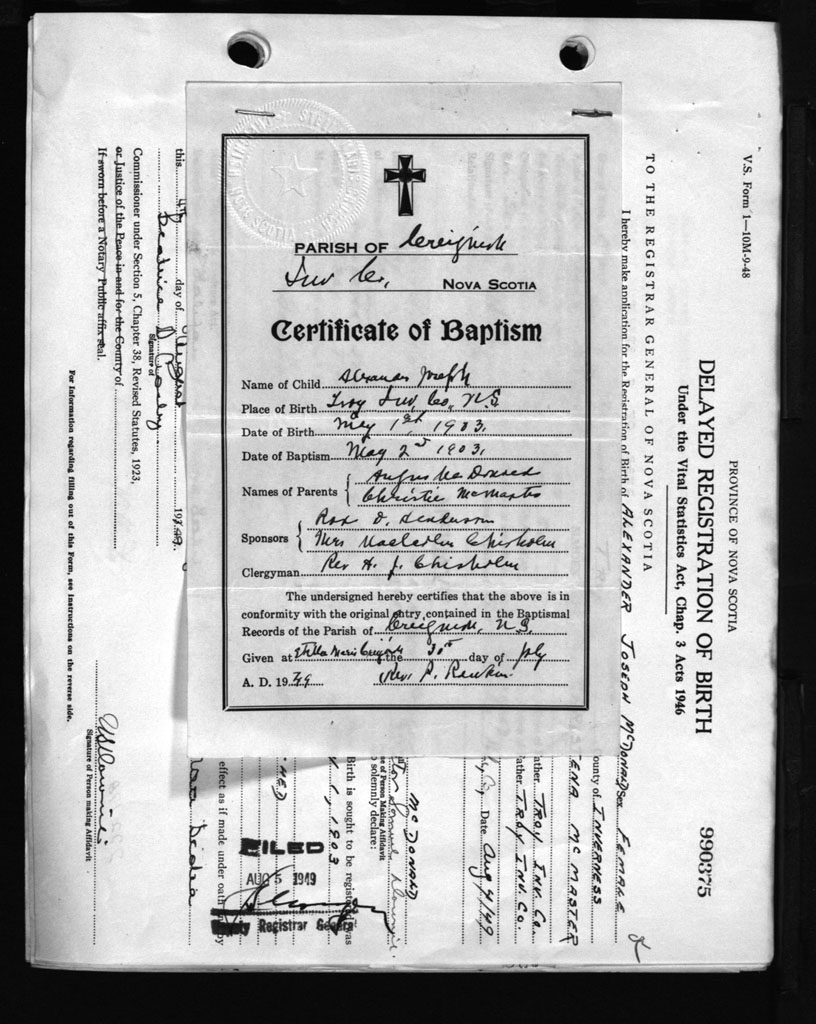 PARISH OF Creignish
Inv Co, NOVA SCOTIA
Certificate of Baptism
Name of Child Alexander Joseph
Place of Birth Troy Inv Co, N.S.
Date of Birth May 1st 1903.
Date of Baptism May 2nd 1903.
Names of Parents { Angus McDonald
Christie McMaster
Sponsors { D. Henderson
Mrs Chisholm
Clergyman Rev H. J. Chisholm
The undersigned hereby certifies that the above is in
conformity with the original entry contained in the Baptismal
Records of the Parish of Creignish, N.S.
Given at Stella Maris Creignish the 30th day of July
A. D. 1949 Rev. P. Rankin
V.S. Form 1—10M-9-48
PROVINCE OF NOVA SCOTIA
DELAYED REGISTRATION OF BIRTH 990375
Under the Vital Statistics Act, Chap. 3 Acts 1946
TO THE REGISTRAR GENERAL OF NOVA SCOTIA
I hereby make application for the Registration of Birth of ALEXANDER JOSEPH McDONALD Sex FEMALE
ounty of INVERNESS
ENA McMASTER
ather TROY INV. CO.
ather TROY INV. CO.
Date Aug 4/49
McDONALD
me of Person Making Affidavit
o solemnly declare:
Birth is sought to be registered was
1, 1903
effect as if made under oath by
FILED
AUG 5 1949
Deputy Registrar General
this 4th day of August 1949.
Beatrice D Crosby
Signature of
Commissioner under Section 5, Chapter 38, Revised Statutes, 1923,
or Justice of the Peace in and for the County of
If sworn before a Notary Public affix seal.
Signature of Person making Affidavit
For Information regarding filling out of this Form, see instructions on the reverse side.